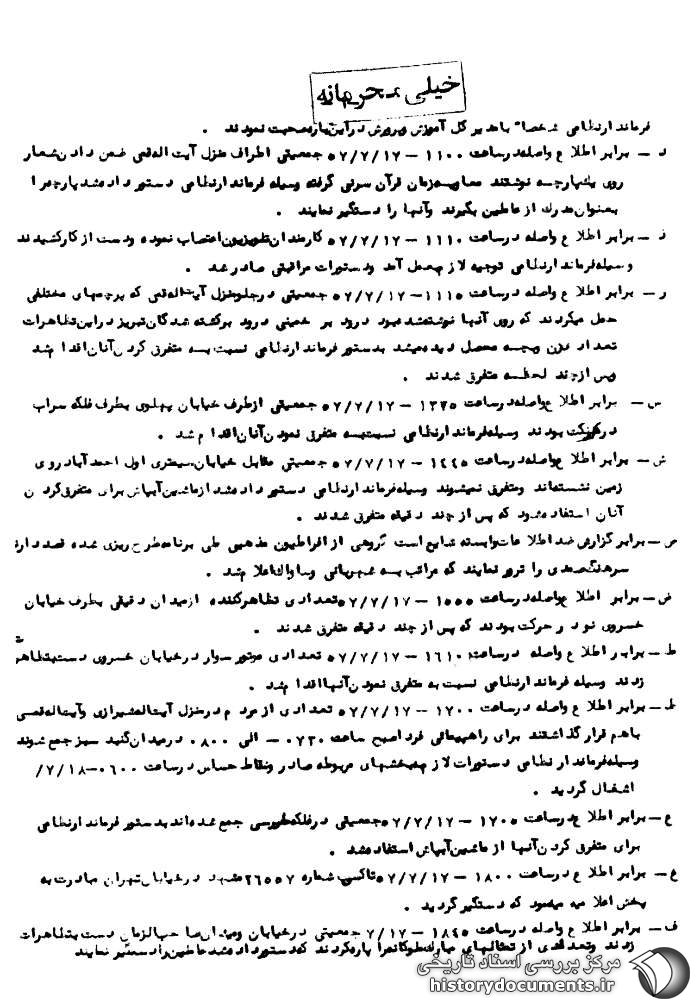 خیلی محرمانه
فرماندار نظامی شخصاً با مدیر کل آموزش و پرورش در این باره صحبت نمودند .
د – برابر اطلاع واصله در ساعت ۱۱۰۰ – ۵۷/۷/۱۷ جمعیتی اطراف منزل آیت اله قمی ضمن دادن شعار
روی یک پارچه نوشتند معاویه زمان قرآن سرنی گرفته وسیله فرماندار نظامی دستور داده شد پارچه را
بعنوان مدرک از عاملین بگیرند و آنها را دستگیر نمایند .
ذ – برابر اطلاع واصله در ساعت ۱۱۱۰ – ۵۷/۷/۱۷ کارمندان تلویزیون اعتصاب نموده و دست از کار کشیدند
وسیله فرماندار نظامی توجیه لازم بعمل آمد و دستورات مراقبتی صادر شد .
ر – برابر اطلاع واصله در ساعت ۱۱۱۵ – ۵۷/۷/۱۷ جمعیتی در جلو منزل آیت اله قمی که پرچمهای مختلفی
حمل میکردند که روی آنها نوشته شده بود درود بر خمینی درود بر کشته شدگان تبریز در این تظاهرات
تعدادی زن و بچه محصل دیده میشد بدستور فرماندار نظامی نسبت به متفرق کردن آنان اقدام شد
و پس از چند لحظه متفرق شدند .
س – برابر اطلاع واصله در ساعت ۱۳۳۵ – ۵۷/۷/۱۷ جمعیتی از طرف خیابان پهلوی بطرف فلکه سراب
در حرکت بودند وسیله فرماندار نظامی نسبت به متفرق نمودن آنان اقدام شد .
ش – برابر اطلاع واصله در ساعت ۱۴۴۵ – ۵۷/۷/۱۷ جمعیتی مقابل خیابان سیمتری اول احمدآباد روی
زمین نشسته اند و متفرق نمیشوند وسیله فرماندار نظامی دستور داده شد از ماشین آبپاش برای متفرق کردن
آنان استفاده شود که پس از چند دقیقه متفرق شدند .
ص – برابر گزارش ضد اطلاعات وابسته شایع است گروهی از افراطیون مذهبی طی برنامه طرح ریزی شده قصد دارند
سرهنگ صمدی را ترور نمایند که مراتب به شهربانی و ساواک اعلام شد .
ض – برابر اطلاع واصله در ساعت ۱۵۵۵ – ۵۷/۷/۱۷ تعدادی تظاهر کننده از میدان دقیقی بطرف خیابان
خسروی نو در حرکت بودند که پس از چند دقیقه متفرق شدند .
ط – برابر اطلاع واصله در ساعت ۱۶۱۰ – ۵۷/۷/۱۷ تعدادی موتور سوار در خیابان خسروی دست بتظاهر
زدند وسیله فرماندار نظامی نسبت به متفرق نمودن آنها اقدام شد .
ظ – برابر اطلاع واصله در ساعت ۱۷۰۰ – ۵۷/۷/۱۷ تعدادی از مردم در منزل آیت اله شیرازی و آیت اله قمی
باهم قرار گذاشتند برای راهپیمائی فردا صبح ساعت ۰۷۳۰ – الی ۰۸۰۰ در میدان گنبد سبز جمع شوند
وسیله فرماندار نظامی دستورات لازم به بخشهای مربوطه صادر و نقاط حساس در ساعت ۰۶۰۰–۷/۱۸/
اشغال گردید .
ع – برابر اطلاع در ساعت ۱۷۰۵ – ۵۷/۷/۱۷ جمعیتی در فلکه طبرسی جمع شده اند بدستور فرماندار نظامی
برای متفرق کردن آنها از ماشین آبپاش استفاده شد .
غ – برابر اطلاع در ساعت ۱۸۰۰ – ۵۷/۷/۱۷ تاکسی شماره ۲۶۵۵۷ مشهد در خیابان تهران مبادرت به
پخش اعلامیه مینمود که دستگیر گردید .
ف – برابر اطلاع واصله در ساعت ۱۸۴۵ – ۷/۱۷ جمعیتی در خیابان و میدان دست بتظاهرات
زدند و تعدادی از تمثالهای مبارک ملوکانه را پاره کردند که دستور داده شد عاملین را دستگیر نمایند
مرکز بررسی اسناد تاریخی
historydocuments.ir